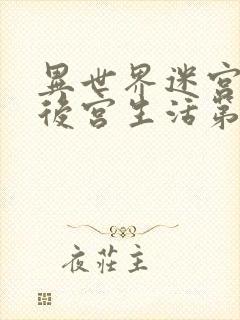 異世界迷宮
後宮生活第
夜莊主